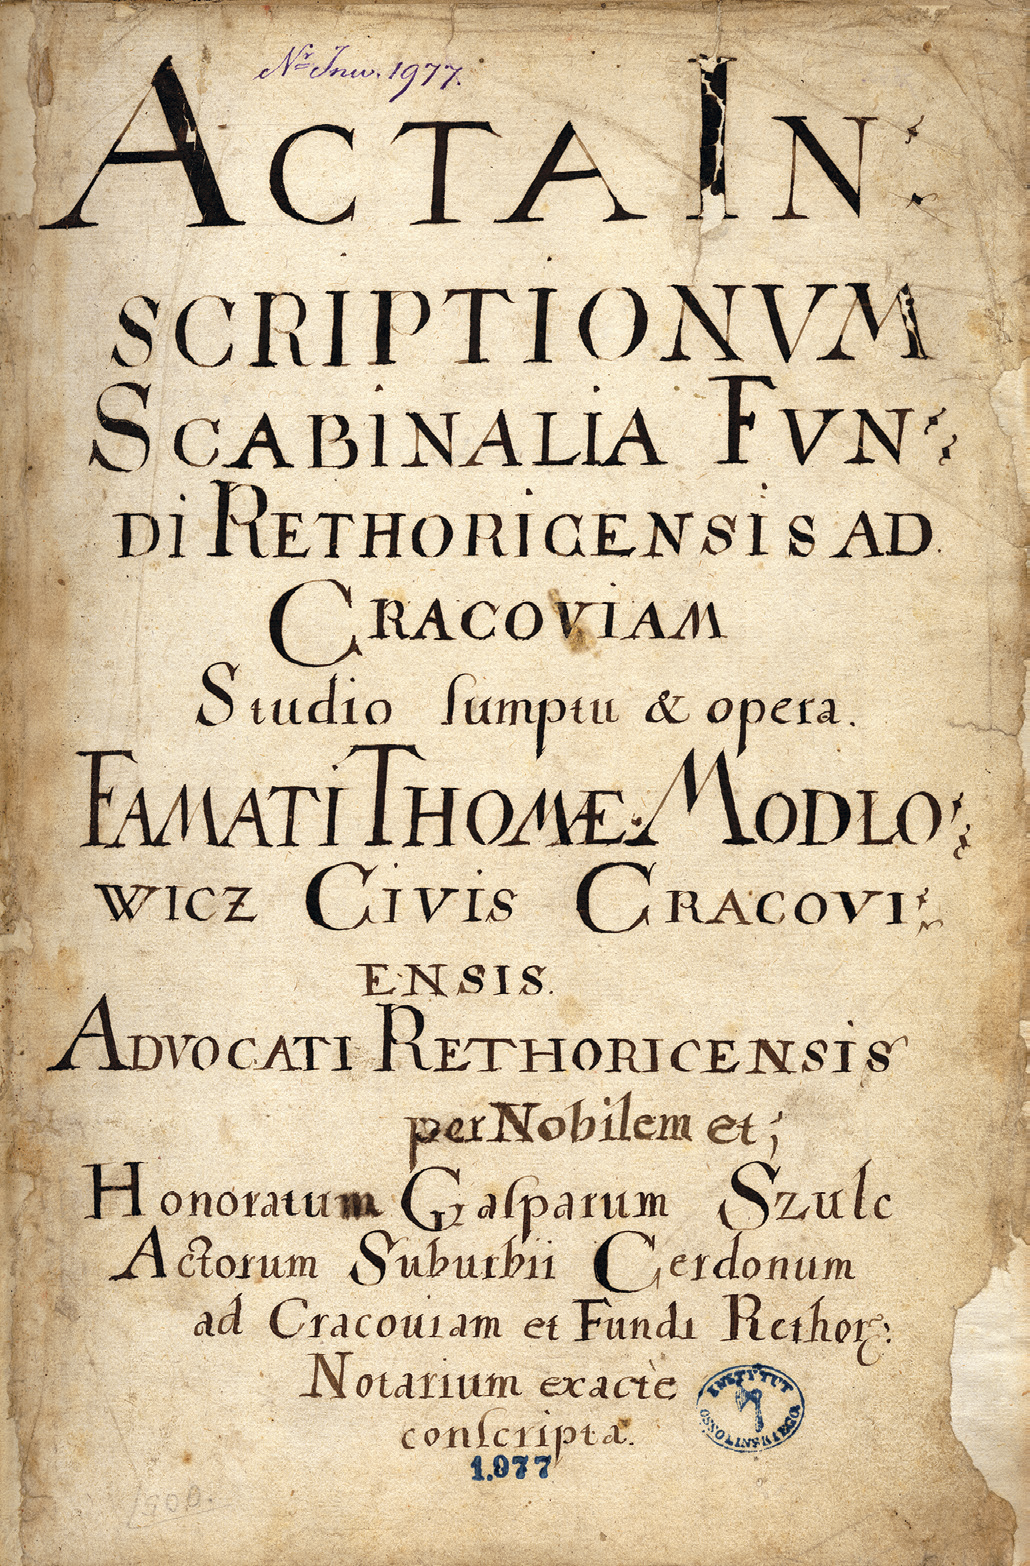 Nr Inw. 1977.
ACTA IN:
SCRIPTIONVM
SCABINALIA FVN:
DI RETHORICENSIS AD
CRACOVIAM
Studio ſumptu & opera.
FAMATI THOMÆ MODLO:
WICZ CIVIS CRACOVI:
ENSIS.
ADVOCATI RETHORICENSIS
per Nobilem et;
Honoratum Gaſparum Szulc
Actorum Suburbii Cerdonum
ad Cracouiam et Fundi Rethor:
Notarium exactè
conſcripta.
INSTYTUT
OSSOLIŃSKIEGO
1.977